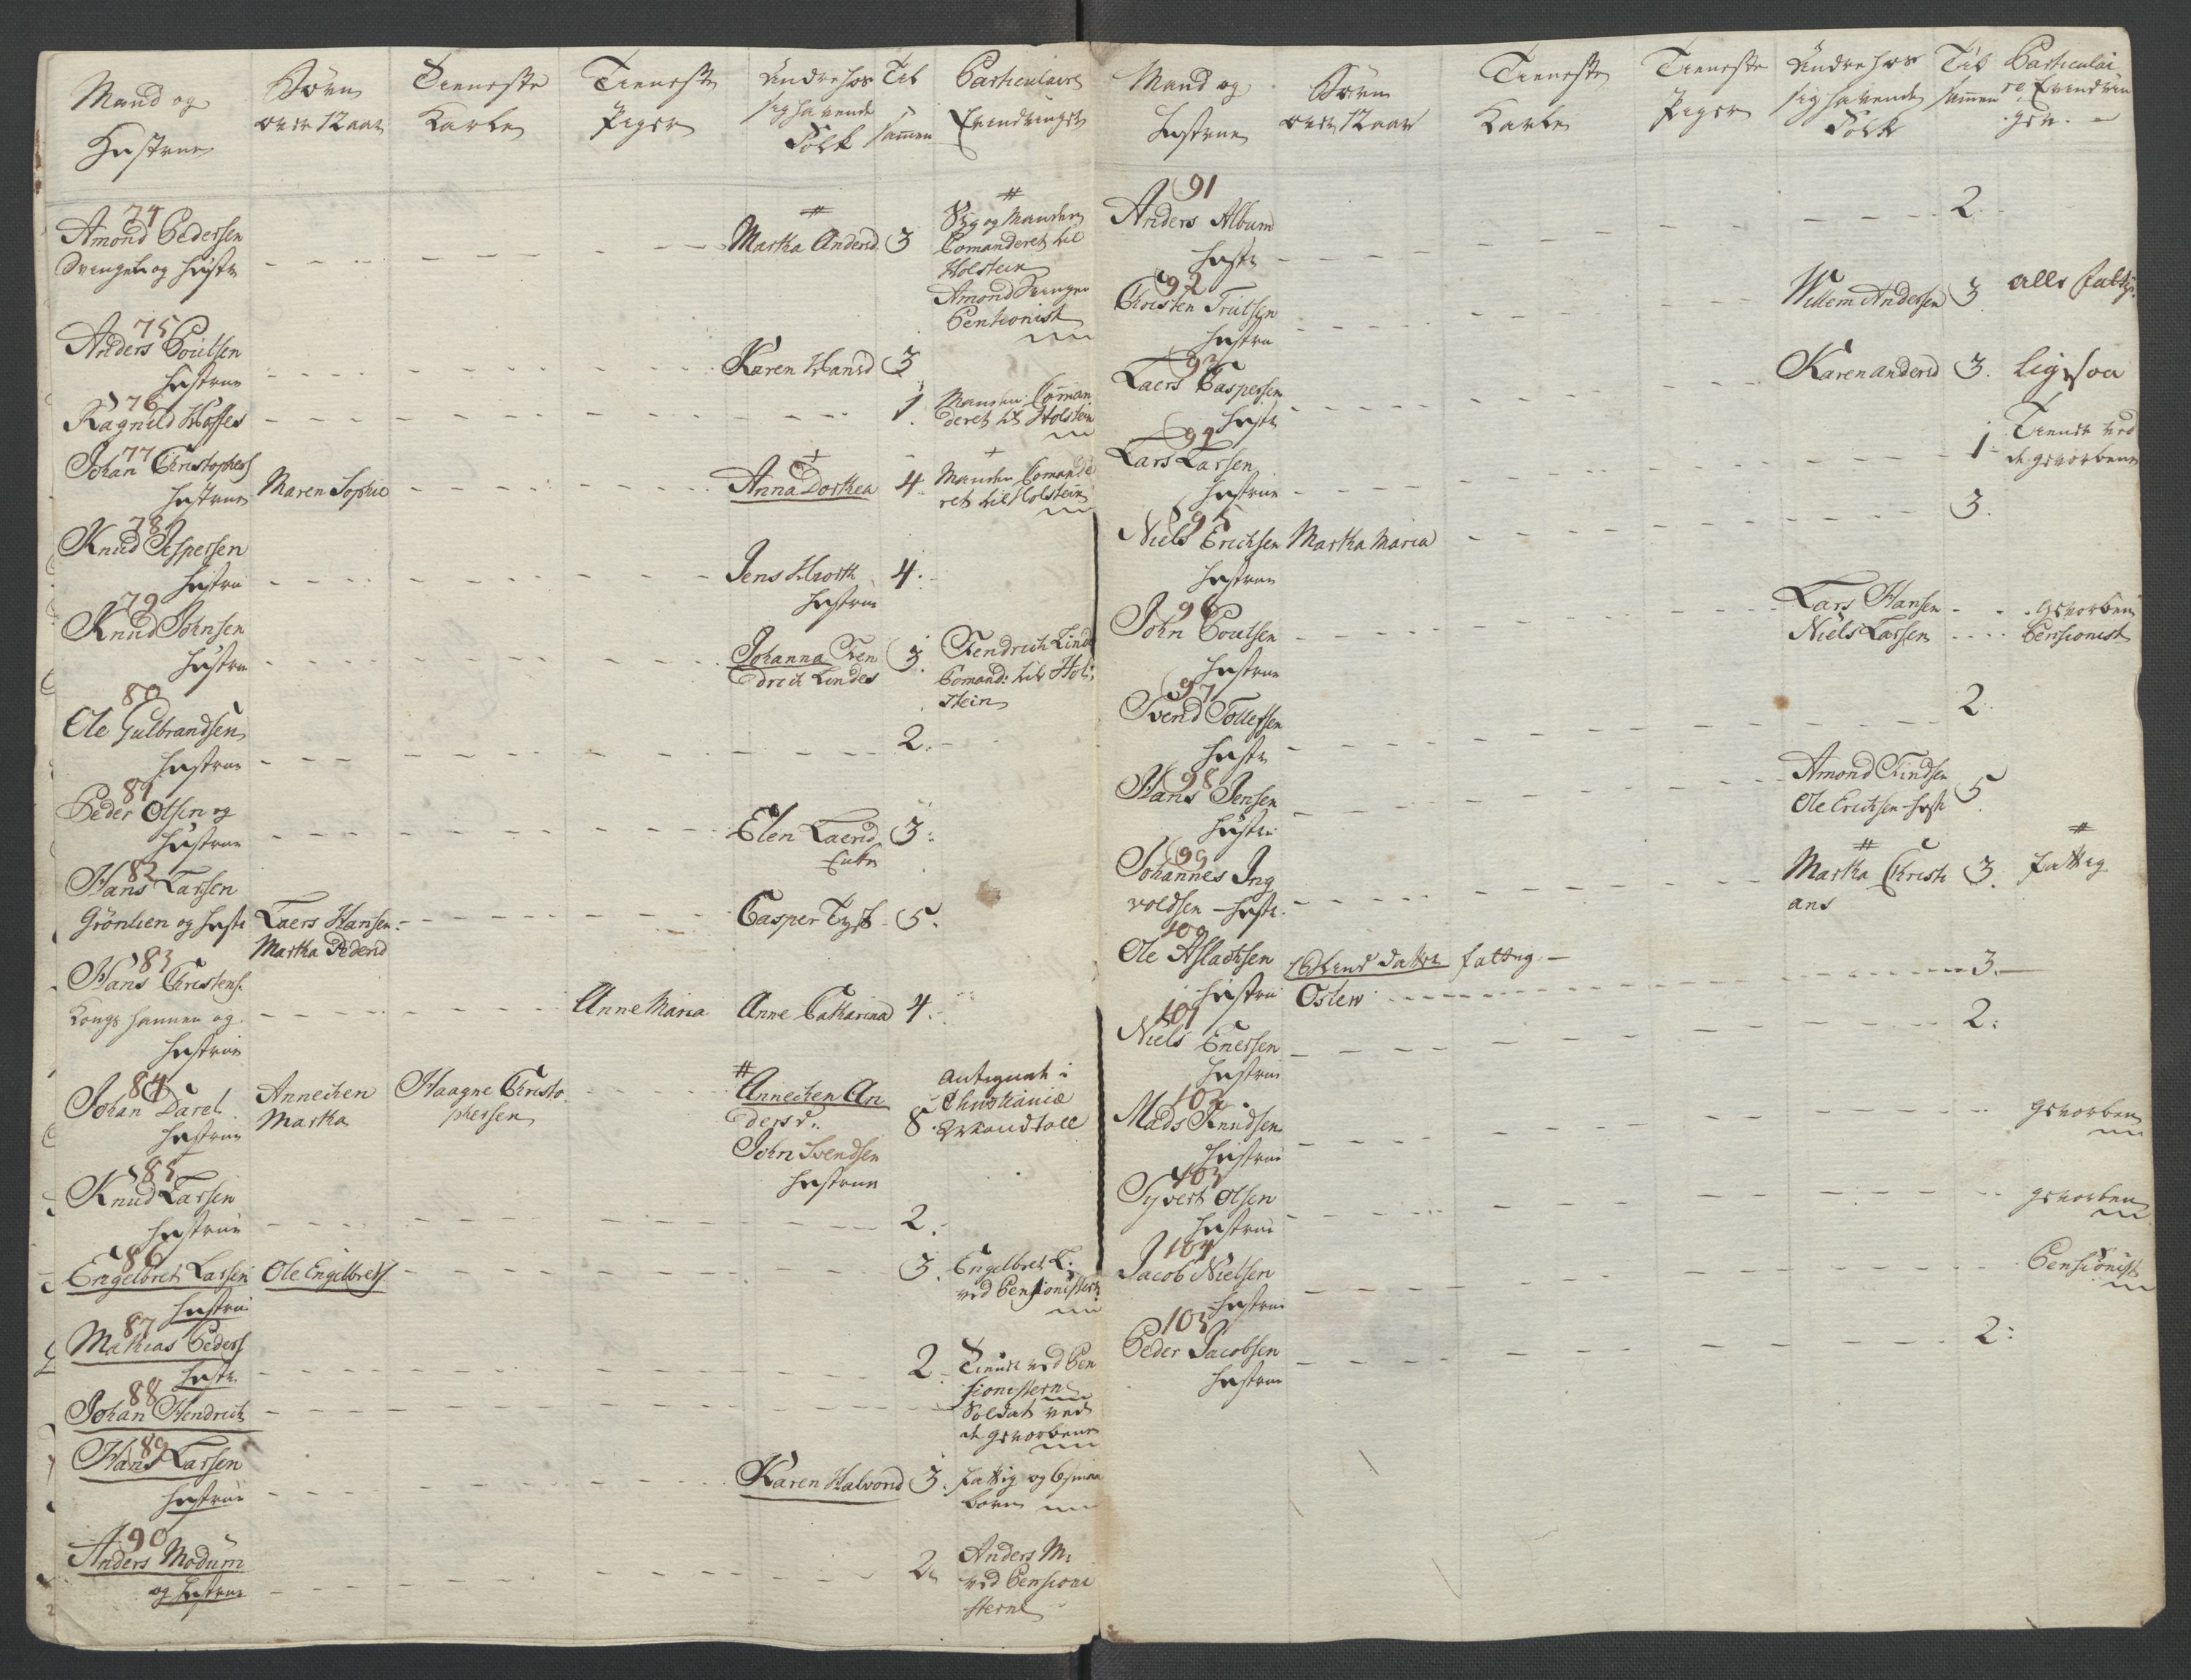 Mand og
Hustrue
Børn
over 12 aar
Tieneste
Karle
Tieneste
Piger
Andre hos
sig havende
Folk
Til
samen
Particulaire
Erindringer
74
Amond Pedersen
Svingel og Hustr
# Martha Andersd 3
#
Syg og Manden
Comanderet til
Holstein
Amond Svingel
Pentionist
75
Anders Poulsen
Hustrue
Karen Hansd 3
76
Ragnild Hoffes
1.
Manden Coman
deret til Holstein
77
Johan Christophers
Hustrue
Maren Sophie
+
Anna Dorthea 4
+
Manden Comande
ret til Holstein
78
Knud Jespersen
Hustrue
Jens Hiorth 4.
Hustrue
79
Knud Johnsen
Hustrue
Johanna Fen
drich Lindes
3.
Fendrich Linde
Comand: til Hol:
stein
80
Ole Gulbrandsen
Hustrue
2.
81
Peder Olsen og
Hustrue
Elen Laersd 3.
Enke
82
Hans Larsen
Grønlien og Hustr
Laers Hansen
Martha Pedersd
Casper Tyst 5.
83
Hans Christens.
Kongs hannen og
Hustrue
Anne Maria
Anne Catharina 4.
84
Johan Darel
Hustrue
Annechen
Martha
Haagne Christo
phersen
#
Annechen An
dersd.
John Svendsen
Hustrue
8.
antegnet i
Christiania
Mandtall
85
Knud Larsen
Hustrue
2.
86
Engelbret Larsen
Hustrue
Ole Engelbrets
3.
Engelbret L.
ved Pensionisterne
87
Mathias Peders
Hustr.
2.
Tient ved Pen
sionisterne
88
Johan Hendrich
Soldat ved
de gevorbene
89
Hans Larsen
Hustrue
Karen Halvorsd 3.
fattig og smaa
børn
90
Anders Modum
og Hustrue
2.
Anders M:
ved Pensioni
sterne
Mand og
Hustrue
Børn
over 12 aar
Tieneste
Karle
Tieneste
Piger
Andre hos
sig havende
Folk
Til
samen
Particulai
re Erindrin
ger.
91
Anders Album
Hustr
2.
92
Christen Trulsen
Hustru
Willem Andersen 3
alle fattige
93
Laers Caspersen
Hustr
Karen Andersd 3.
ligesaa
94
Lars Larsen
Hustrue
1
Tient ved
de gevorbene
95
Niels Erichsen
Hustrue
Martha Maria
3.
96
John Poulsen
Hustrue
Lars Hansen
Niels Larsen
gevorben
Pensionist
97
Svend Tollefsen
Hustr
2.
98
Hans Jensen
Hustru
Amond Findsen
Ole Erichsen Hustr
5.
99
Johannes Ing
voldsen Hustr.
#
Martha Christi
ans
3.
#
fattig
100
Ole Aslachsen
Hustrue
datter fattig
Osten
3.
101
Niels Enersen
Hustrue
2:
102
Mads Knudsen
Hustrue
gevorben
103
Syvert Olsen
Hustrue
gevorben
104
Jacob Nielsen
Hustrue
Pensionist
105
Peder Jacobsen
Hustrue
2: